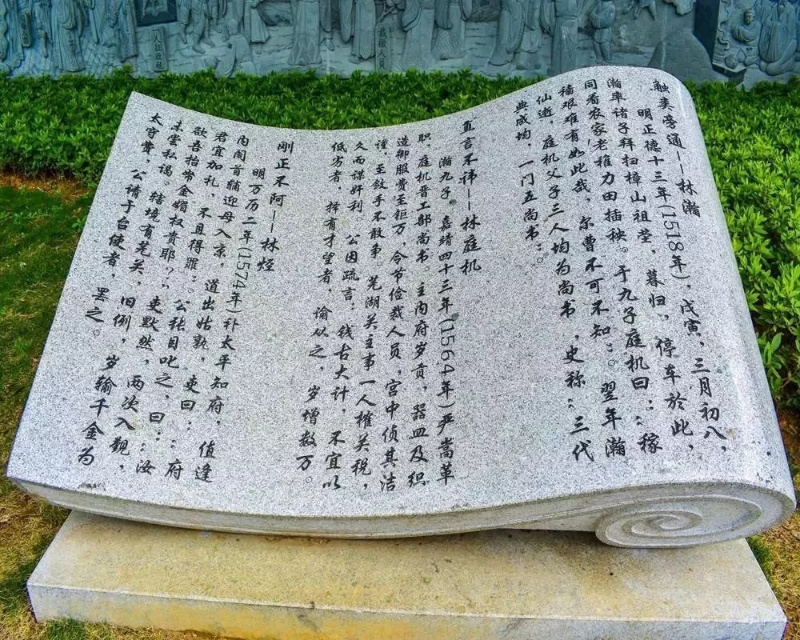 触类旁通——林瀚
明正德十三年(1518年),戊寅,三月初八,
瀚率诸子拜扫樟山祖茔,暮归,停车於此,
同看农家老稚力田插秧。于九子庭机曰:“稼
穑艰难有如此哉,尔曹不可不知。”翌年瀚
仙逝,庭机父子三人均为尚书,史称:“三代
典成均,一门五尚书”。
直言不讳——林庭机
瀚九子。嘉靖四十三年(1564年)严嵩革
职,庭机晋工部尚书。主内府岁贡,器皿及织
造御服费至钜万,令节俭裁人员,宫中侦其洁
谨,至敛手不敢事,芜湖关主事一人榷关税,
久而谋奸利,公因疏言:钱古大计,不宜以
低劣者,择有才望者,谕从之,岁增数万。
刚正不阿——林烃
明万历二年(1574年)补太平知府,值逢
内阁首辅迎母入京,道出姑孰,吏曰:“府
君宜加礼,不且得罪”。公张目叱之,曰:“汝
欲吾捐帑金媚权贵耶?”吏默然,两次入觐,
未尝私谒。辖境有芜关,旧例,岁输千金为
太守费,公请于台使者,罢之。